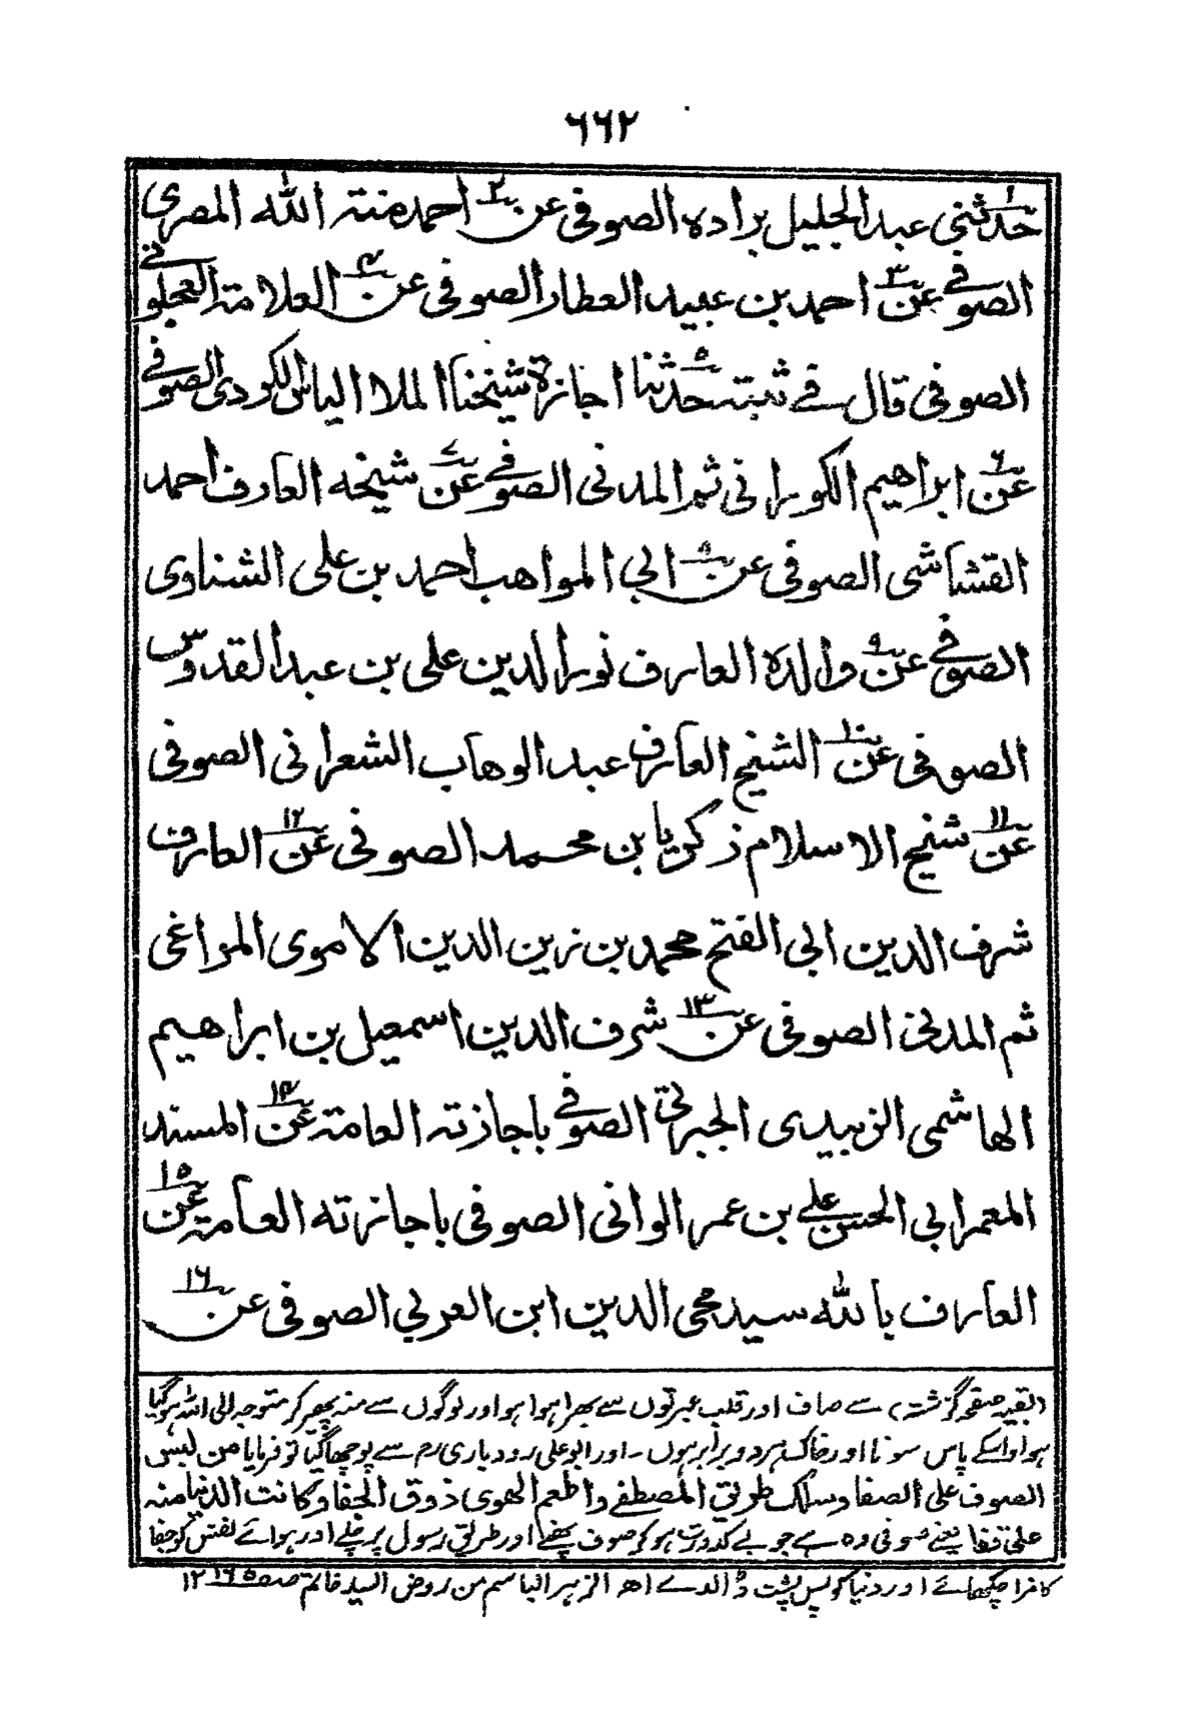 ٦٦٢
حدثنی عبد الجلیل براده الصوفی عن احمد منته الله المصری
الصوفی عن احمد بن عبید العطار الصوفی عن العلامته العجلونی
الصوفی قال فے ثبته حدثنا اجازة شیخنا الملا الیاس الکردی الصوفی
عن ابراهیم الکورانی ثم المدنی الصوفی عن شیخه العارف احمد
القشاشی الصوفی عن ابی المواهب احمد بن علی الشناوی
الصوفی عن والده العارف نور الدین علی بن عبد القدوس
الصوفی عن الشیخ العارف عبد الوهاب الشعرانی الصوفی
عن شیخ الاسلام زکریا بن محمد الصوفی عن العارف
شرف الدین ابی الفتح محمد بن زین الدین الاموی المراغی
ثم المدنی الصوفی عن شرف الدین اسمعیل بن ابراهیم
الهاشمی الزبیدی الجبرتی الصوفی باجازته العامته عن المسند
المعمر ابی الحسن علی بن عمر الوانی الصوفی باجازته العامته عن
العارف بالله سید محی الدین ابن العربی الصوفی عن
(بقیه صفحه گزشته) سے صاف اور قلب عبرتوں سے بھرا ہوا ہو اور لوگوں سے منه پھیر کر متوجه الی الله ہو گیا
ہو اور اسکے پاس سونا اور خاک ہر دو برابر ہوں - اور ابو علی رودباری رح سے پوچھا گیا تو فرمایا من لبس
الصوف علی الصفا وسلک طریق المصطفے واطعم الهوی ذوق الجفا وکانت الدنیا منه
علی قفا یعنے صوفی وه ہے جو بے کدورت ہو کر صوف پہنے اور طریق رسول پر چلے اور ہوائے نفس کو جفا
کا مزا چکھائے اور دنیا کو پس پشت ڈالدے اھ الزهر الباسم من روض السید قاسم صـ ١٦٥ ١٢